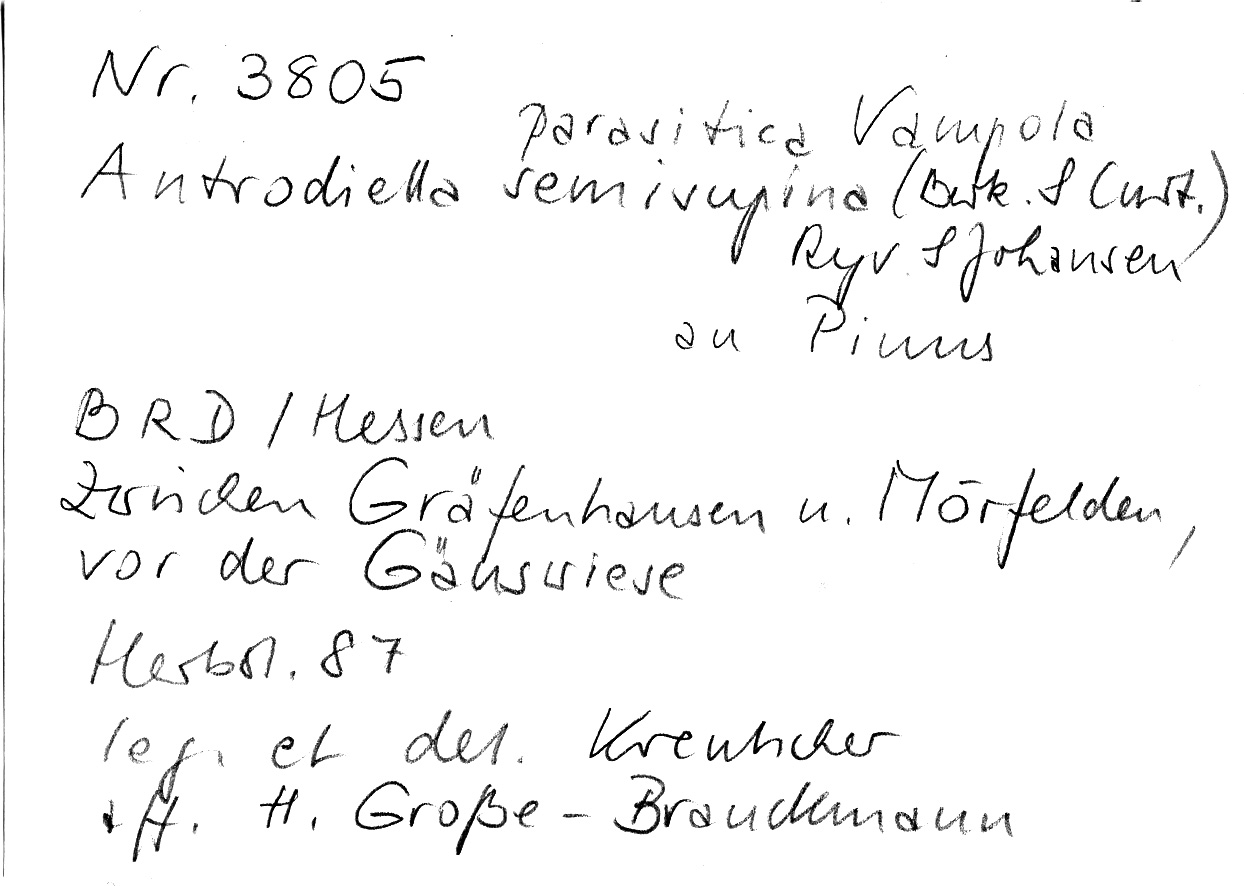 Nr. 3805
parasitica Vampola
Antrodiella semisupina (Berk. & Curt.)
Ryv. & Johansen
an Pinus
BRD / Hessen
zwischen Gräfenhausen u. Mörfelden,
vor der Gänswiese
Herbst. 87
leg. et det. Kreutscher
+ H. H. Große-Brauckmann